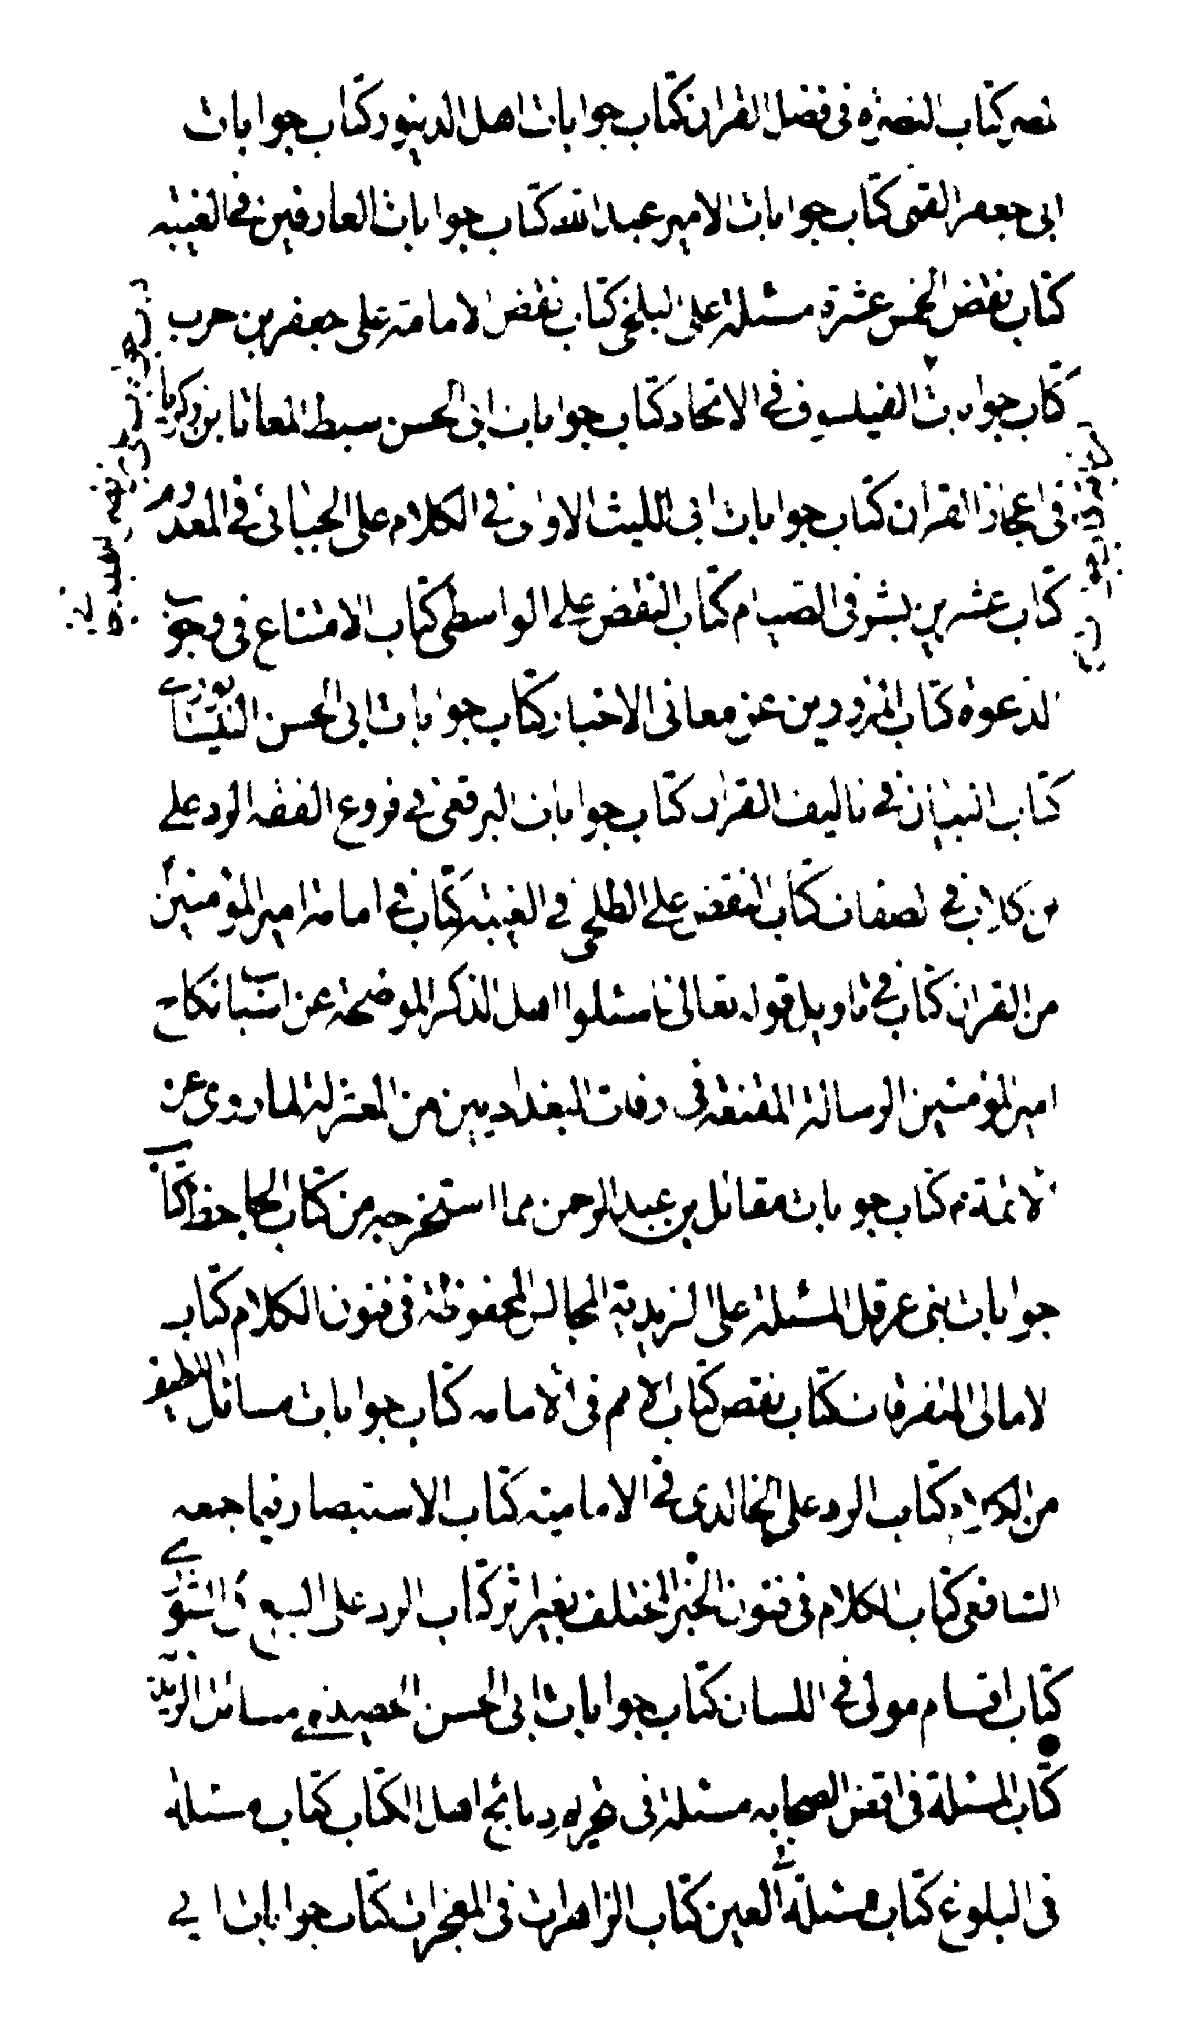 نصر كتاب النصرة في فضل القران كتاب جوابات اهل الدينور كتاب جوابات
ابي جعفر القمي كتاب جوابات الامير عبد الله كتاب جوابات الفارقين في الغيبه
كتاب نقض الخمس عشرة مسئلة على البلخي كتاب نقض الامامة على جعفر بن حرب
كتاب جوابات الفيلسوف في الاتحاد كتاب جوابات ابي الحسن سبط المعافا بن زكريا
في اعجاز القران كتاب جوابات ابي الليث الاواني في الكلام على الجبائي في المعدوم
كتاب عشر بن بشر في الصيام كتاب النقض على الواسطي كتاب الاقناع في وجوب
الدعوة كتاب المزورين عن معاني الاخبار كتاب جوابات ابي الحسن النيشابوري
كتاب البيان في تاليف القران كتاب جوابات البرقعي في فروع الفقه الرد على
بن كلاب في الصفات كتاب النقض على الطلحي في الغيبة كتاب في امامة امير المؤمنين
من القران كتاب في تاويل قوله تعالى فاسئلوا اهل الذكر الموضحة عن اسباب نكاح
امير المؤمنين الرسالة المقنعة في وفاق البغداديين من المعتزلة لما روي عن
الائمة م كتاب جوابات مقاتل بن عبد الرحمن مما استخرجه من كتاب الجاحظ كتاب
جوابات بني عرقل المسئلة على الزيدية المجالس المحفوظة في فنون الكلام كتاب
الامالي المتفرقات كتاب نقض كتاب الاصم في الامامه كتاب جوابات مسائل اللطيف
من الكلام كتاب الرد على الخالدي في الامامية كتاب الاستبصار فيما جمعه
الشافعي كتاب الكلام في فنون الخبر المختلف بغير اثر كتاب الرد على
كتاب اقسام مولى في اللسان كتاب جوابات ابي الحسن الحصيني مسائل الزيدية
كتاب المسئلة في اقضى الصحابه مسئلة في تحريم ذبائح اهل الكتاب كتاب مسئلة
في البلوغ كتاب مسئلة العين كتاب الزاهرات في المعجزات كتاب جوابات ابي